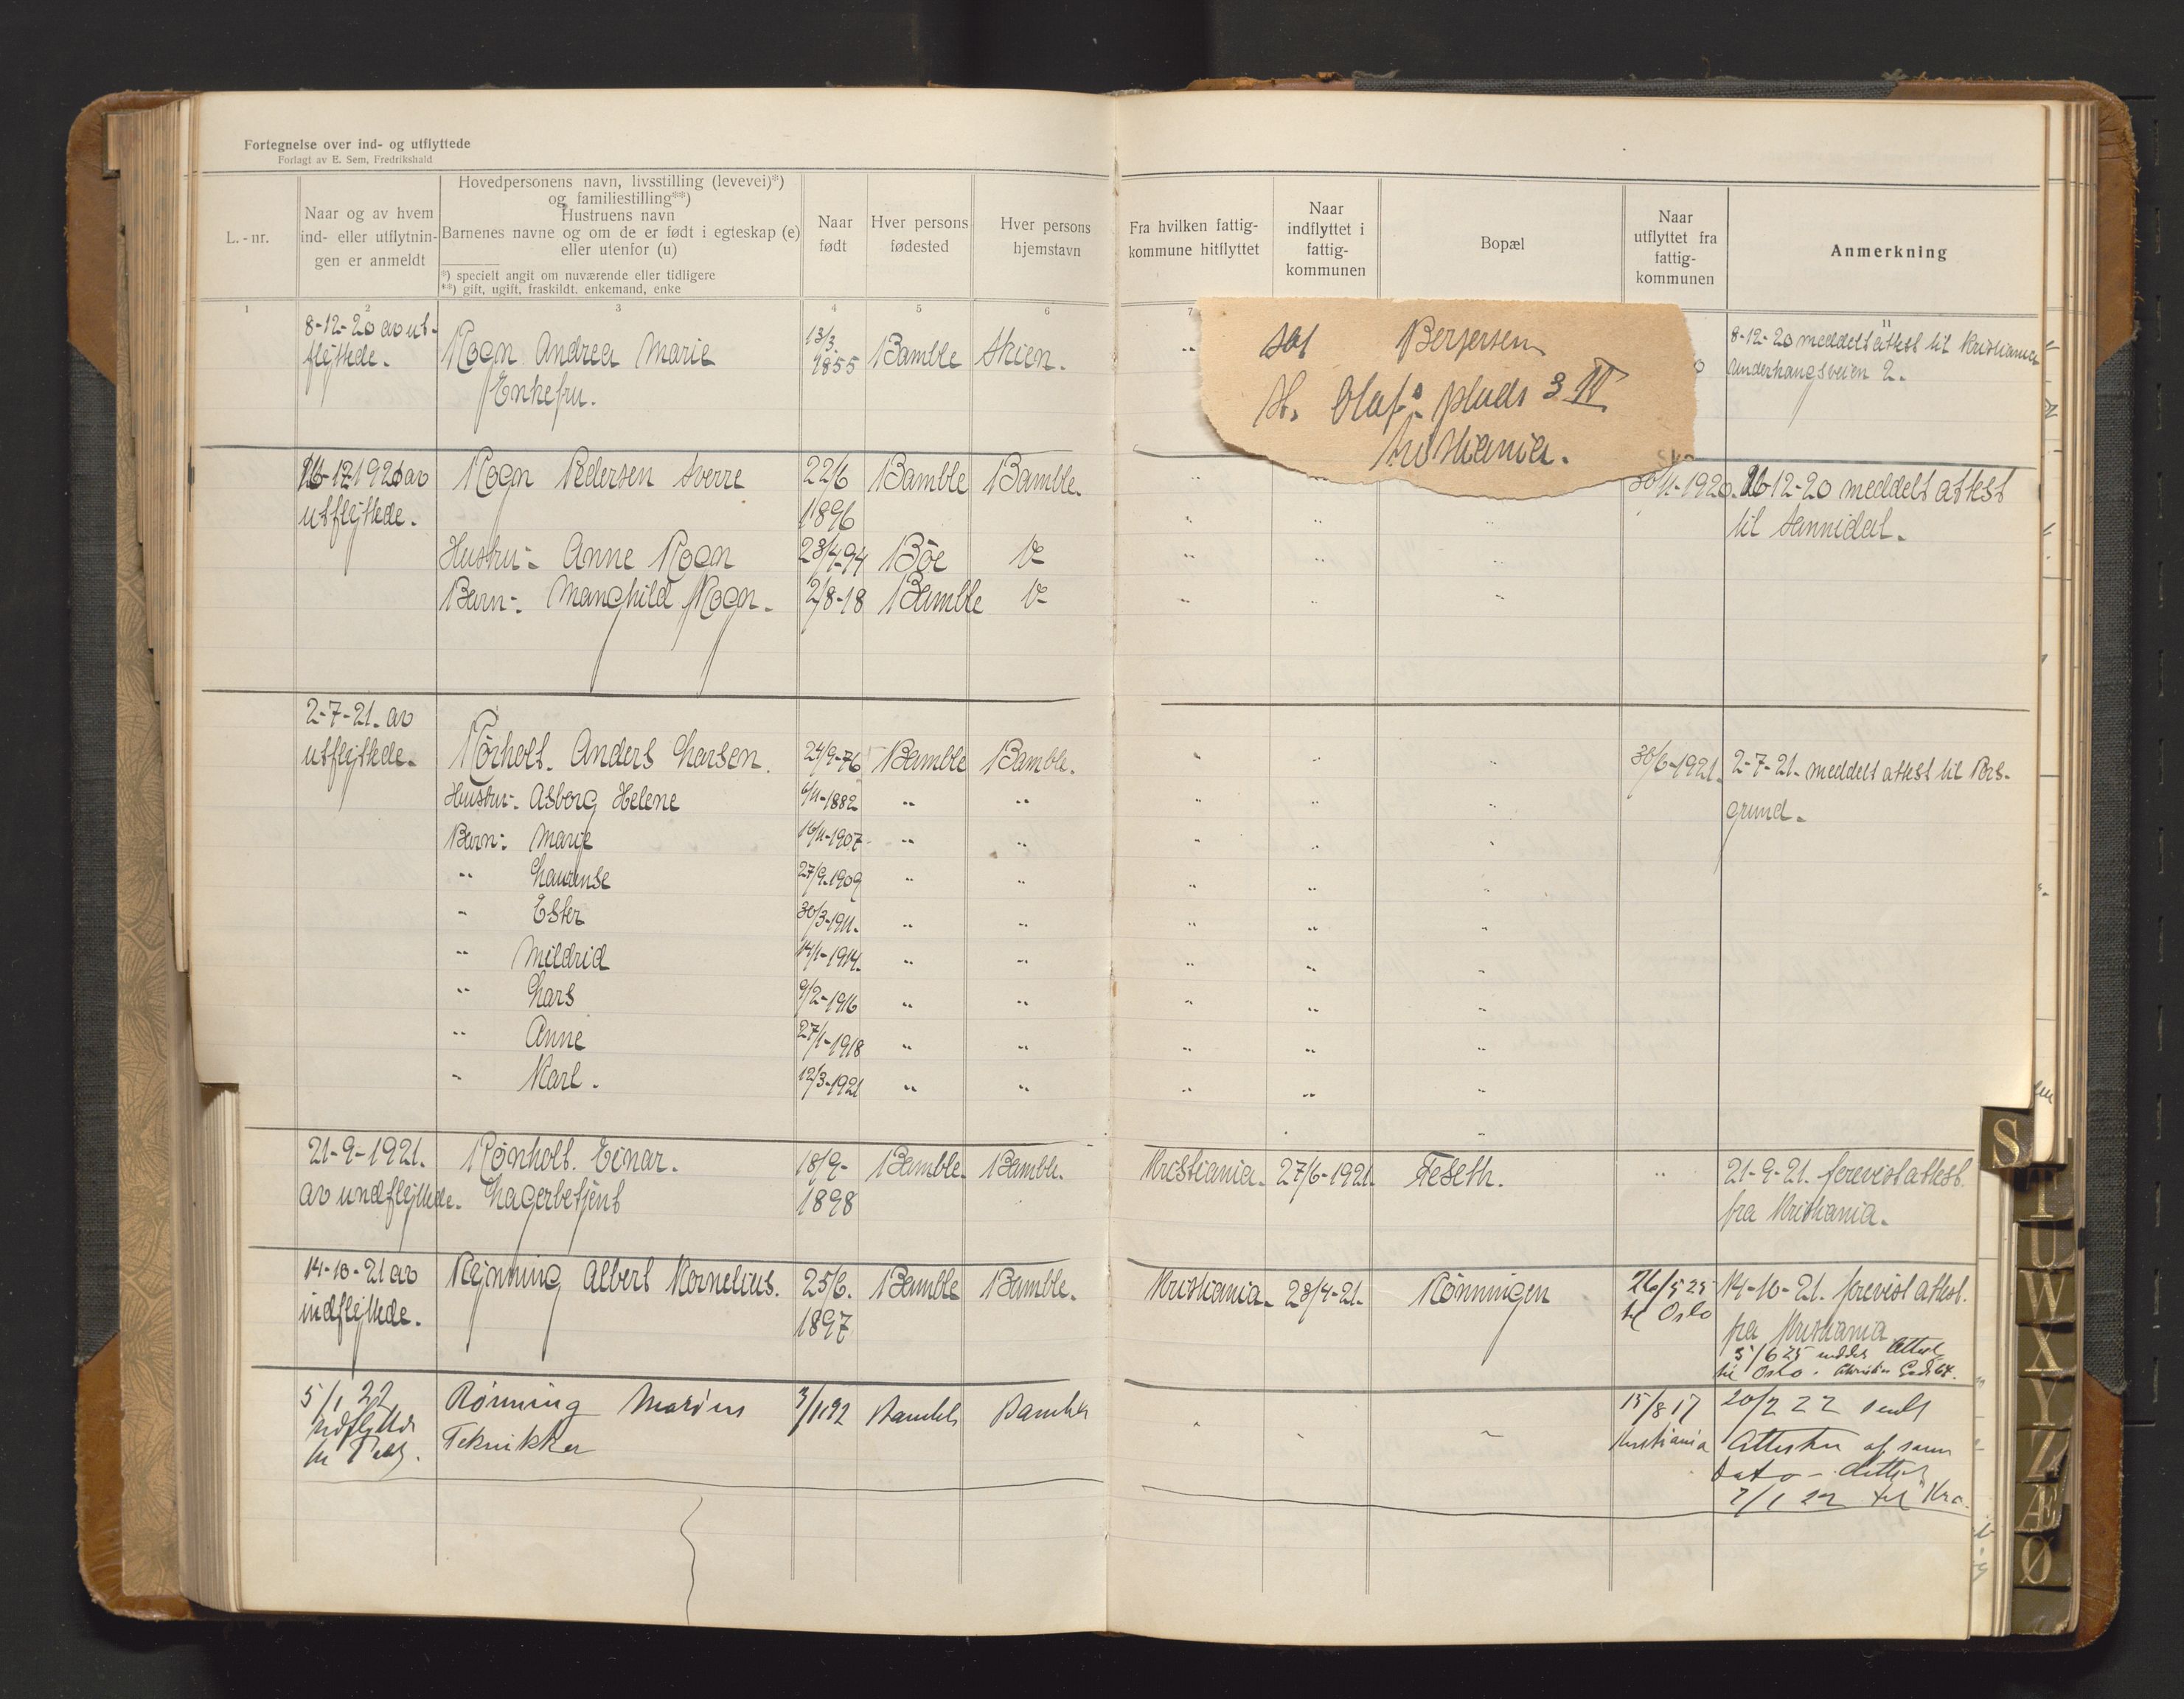 Fortegnelse over ind- og utflyttede
Forlagt av E. Sem, Fredrikshald
L.-nr.
Naar og av hvem ind- eller utflytningen er anmeldt
Hovedpersonens navn, livsstilling (levevei)*)
og familiestilling**)
Hustruens navn
Barnenes navne og om de er født i egteskap (e)
eller utenfor (u)
*) specielt angit om nuværende eller tidligere
**) gift, ugift, fraskildt, enkemand, enke
Naar født
Hver persons fødested
Hver persons hjemstavn
Fra hvilken fattigkommune hitflyttet
Naar indflyttet i fattigkommunen
Bopæl
Naar utflyttet fra fattigkommunen
Anmerkning
1 2 3 4 5 6 7 11
8-12-20 av ut- 13/3
flyttede. Rogn Andrea Marie 1855 Bamble Skien. 8-12-20 meddelt attest til Kristiania
Enkefru. 2.
Bergersen
St. Olafs plads 3 IV
Kristiania.
16-12 1920 av Rogn Pedersen Sverre 22/6 Bamble Bamble. 30/11-1920. 16-12-20 meddelt attest
utflyttede. 1896 til Sannidal.
Hustru:- Anne Rogn 23/4-94 Bøe
Barn:- Manghild Rogn. 2/8-18 Bamble
2-7-21. av
utflyttede. Rørholt. Anders Larsen. 24/9-76 Bamble Bamble. 30/6-1921. 2-7-21. meddelt attest til Pors-
Hustru:- Asborg Helene 6/11-1882 " " grund.
Barn:- Marie 16/11-1907 " "
" Laurense 27/9-1909 " "
" Ester 30/3-1911. " "
" Mildrid 14/1-1914. " "
" Lars 9/2-1916 " "
" Anne 27/1-1918 " "
" Karl. 12/3-1921 " "
21-9-1921. Rønholt. Einar. 18/9- Bamble. Bamble. Kristiania. 27/6-1921. Feseth. " 21-9-21. forevist attest.
av indflyttede. Lagerbetjent 1898 fra Kristiania.
14-10-21 av Rønning Albert Kornelius. 25/6. Bamble Bamble. Kristiania. 23/4-21. Rønningen 26/5 25 14-10-21. forevist attest.
indflyttede. 1897 til Oslo fra Kristiania
5/6 25 meddelt Attest
til Oslo.
5/1 22 Rønning Marius 3/1192 Bamble Bamble 15/8 17 20/2 22 sendt
Tekniker Kristiania Attesten af samme
Dato -
7/1 22 til Kra.
S
T
U
W
X
Y
Z
Æ
Ø